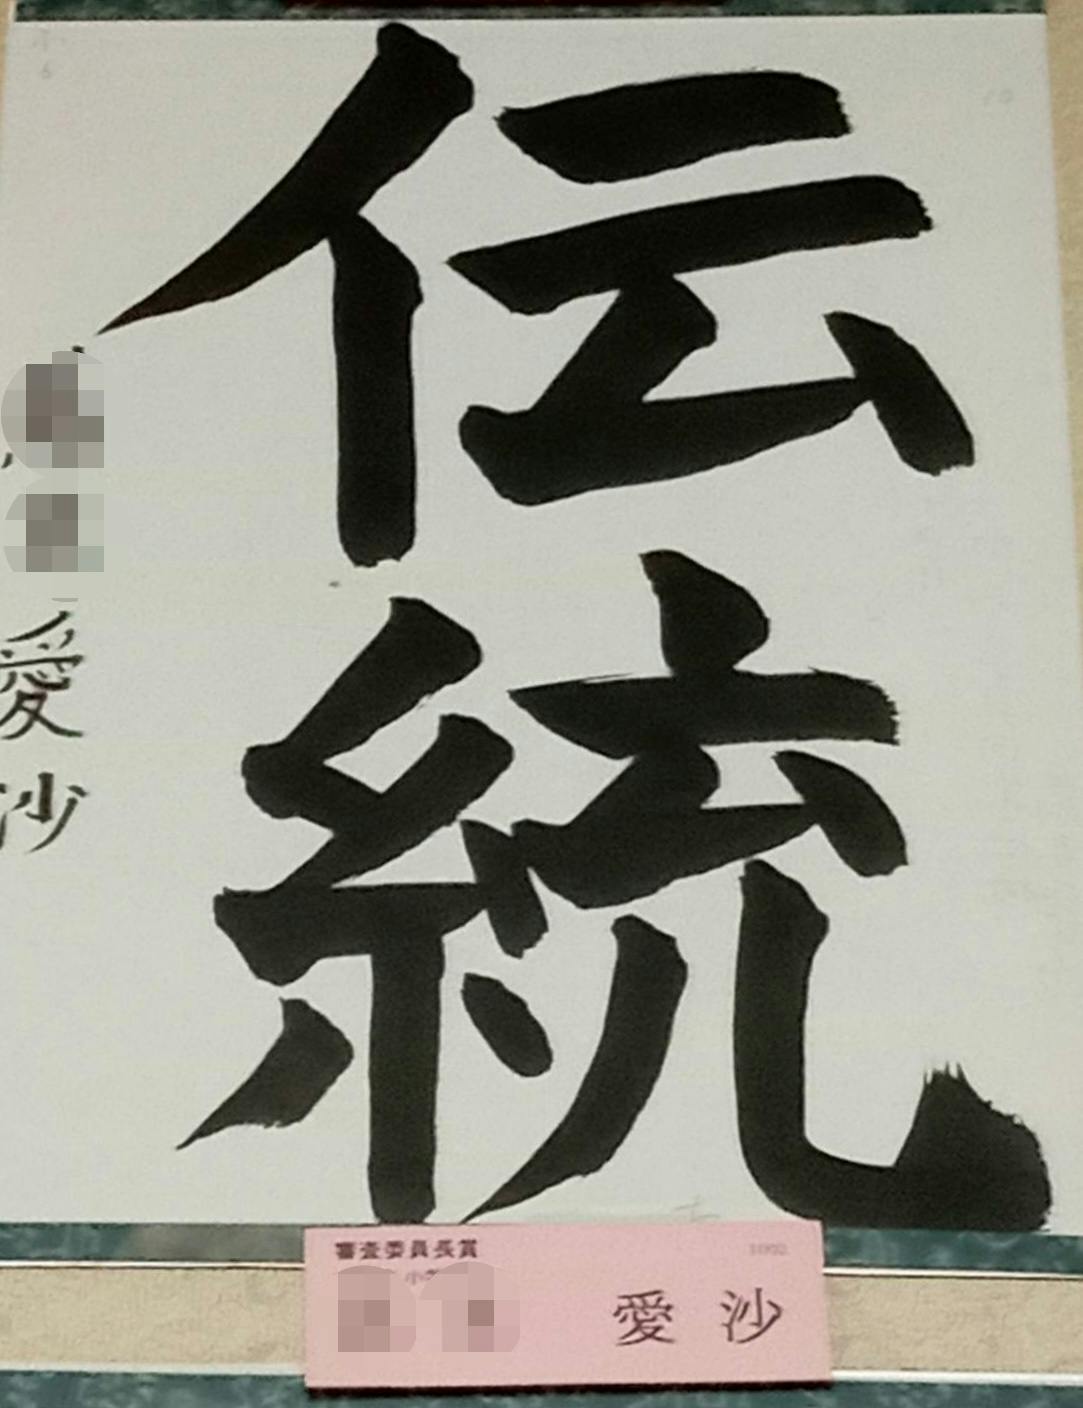 伝統
愛沙
審査委員長賞
愛沙